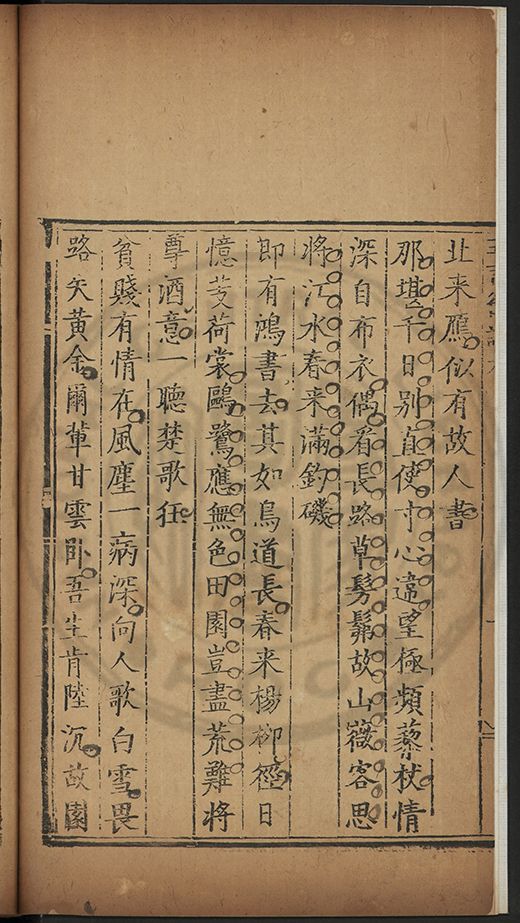 北来鴈似有故人書
那堪千日别直使寸心違望極頻藜杖情
深自布衣偶看長路草髣髴故山薇客思
將江水春来滿釣磯
即有鴻書去其如鳥道長春来楊柳徑日
憶芰荷裳鷗鷺應無色田園豈盡荒難將
尊酒意一聽楚歌狂
貧賤有情在風塵一病深向人歌白雪畏
路矢黄金爾輩甘雲卧吾生肯陸沉故園